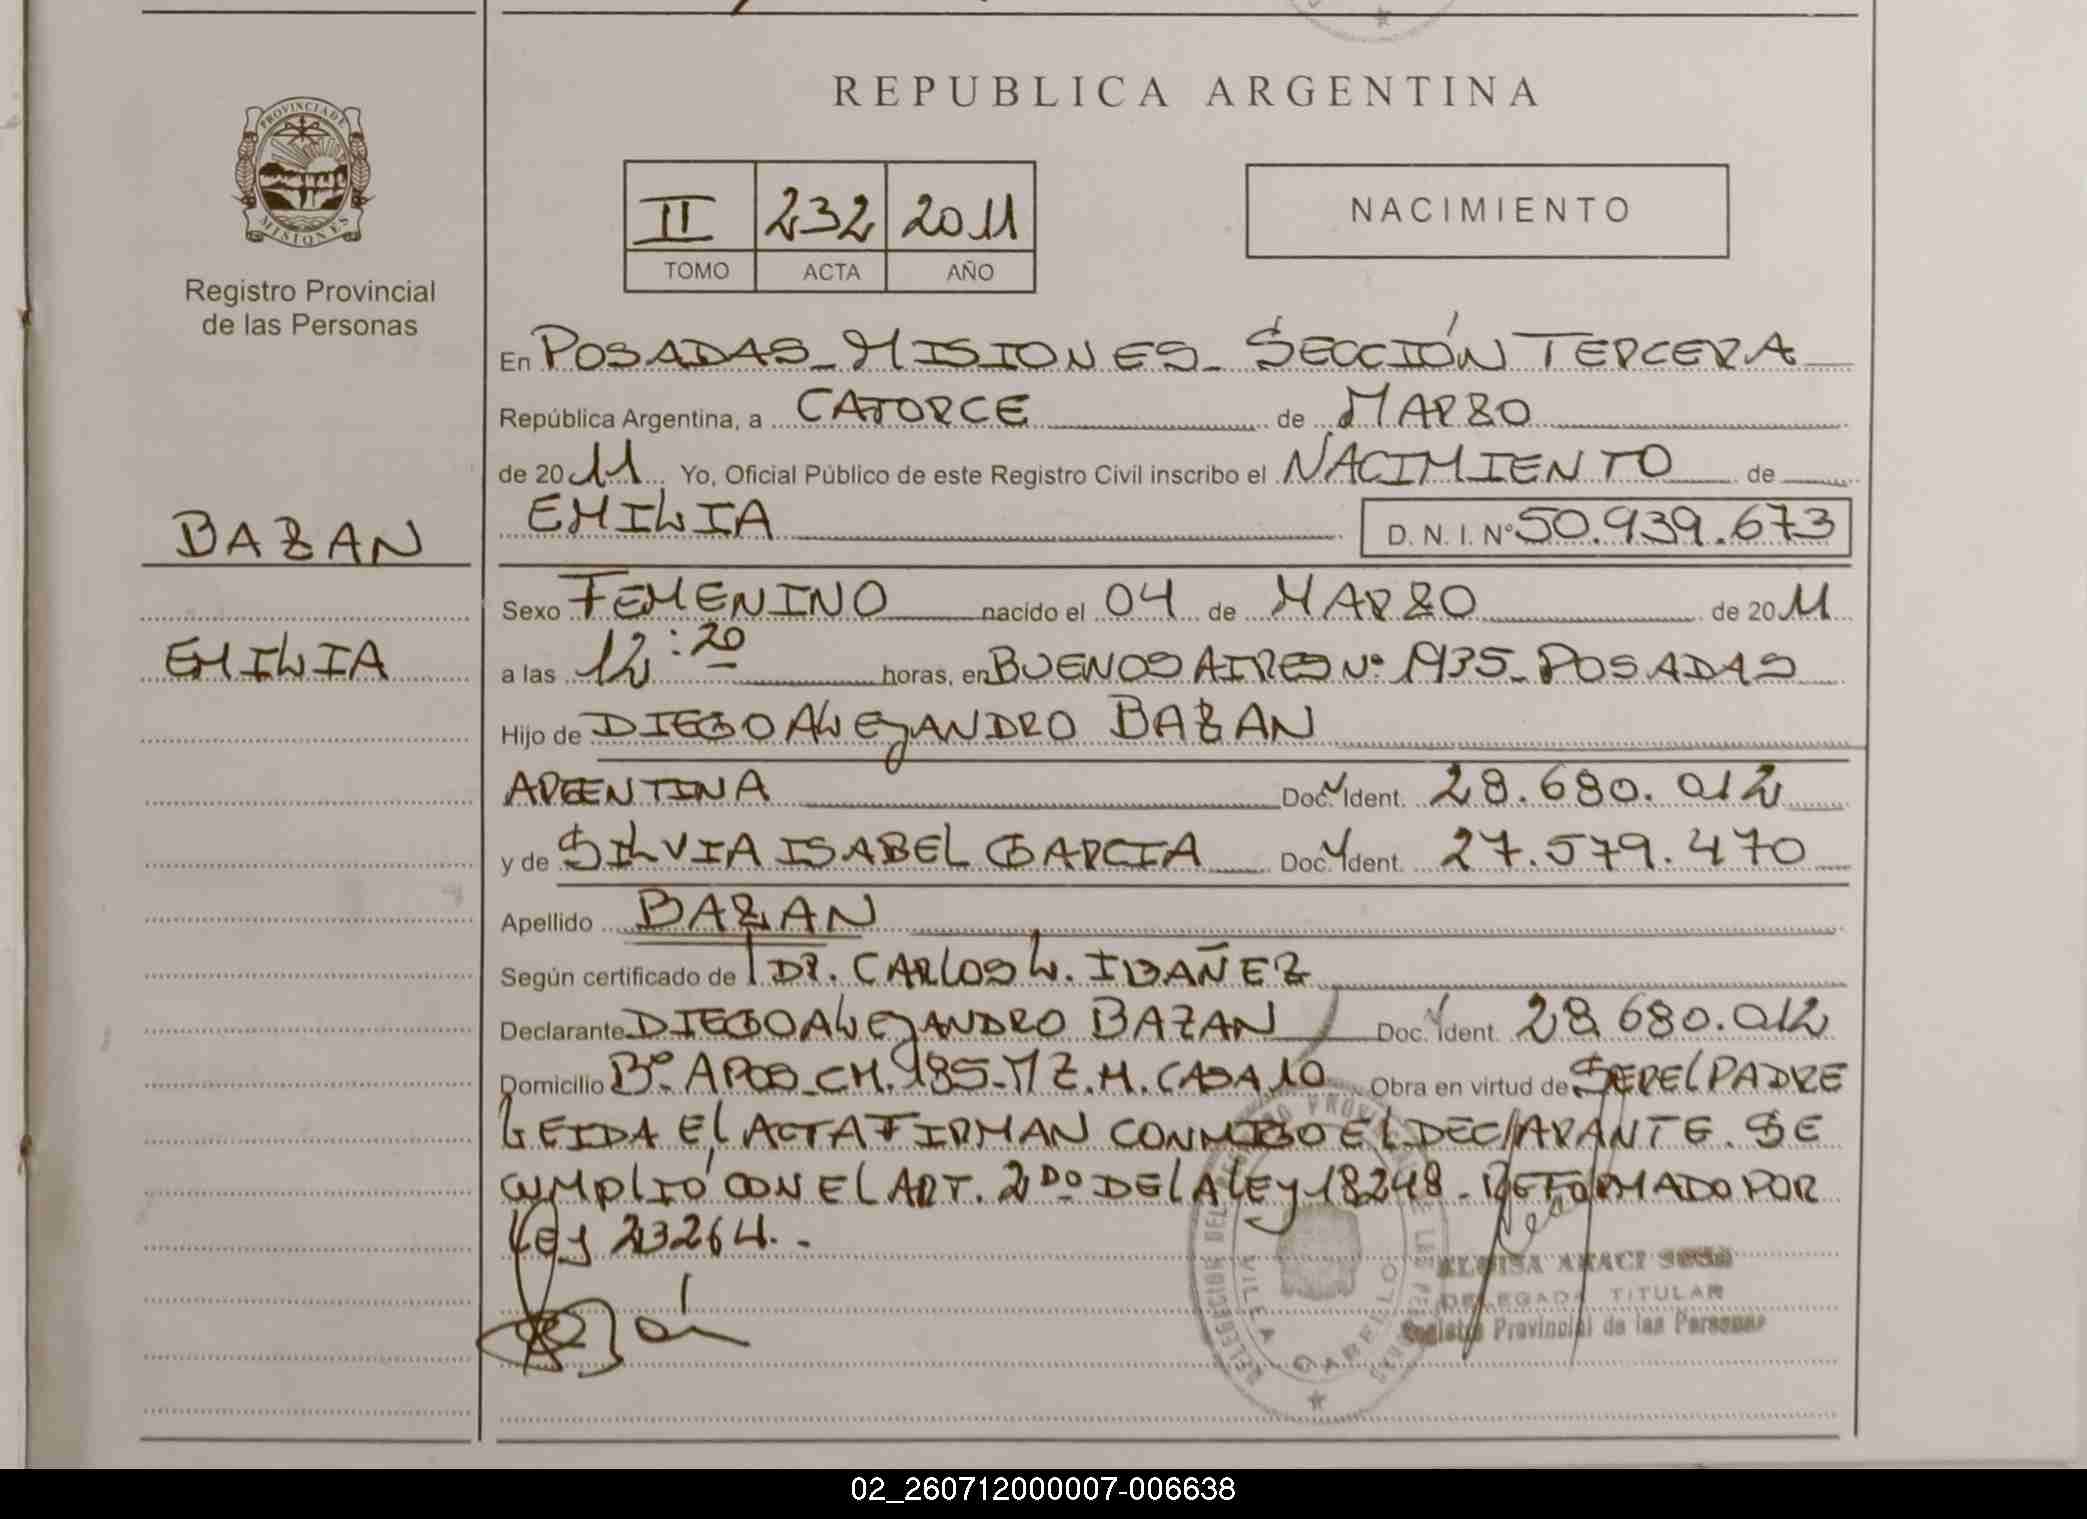 REPUBLICA ARGENTINA
PROVINCIA DE
MISIONES
II 232 2011
TOMO ACTA AÑO
NACIMIENTO
Registro Provincial
de las Personas
En POSADAS_MISIONES_ SECCIÓN TERCERA
República Argentina, a CATORCE de MARZO
de 2011 Yo, Oficial Público de este Registro Civil inscribo el NACIMIENTO de
BAZAN
EMILIA D. N. I. Nº 50.939.673
Sexo FEMENINO nacido el 04 de MARZO de 2011
EMILIA
a las 12:20 horas, en BUENOS AIRES Nº 1935_POSADAS
Hijo de DIEGO ALEJANDRO BAZAN
ARGENTINA Doc. Ident. 28.680.012
y de SILVIA ISABEL GARCIA Doc. Ident. 27.579.470
Apellido BAZAN
Según certificado de DR. CARLOS L. IBAÑEZ
Declarante DIEGO ALEJANDRO BAZAN Doc. Ident. 28.680.012
Domicilio Bº APOS_CH.185-MZ.H.CASA 10 Obra en virtud de SER EL PADRE
LEIDA El ACTA FIRMAN CONMIGO El DEClARANTE. SE
CUMPlIÓ CON El ART. 2DO DE lA lEY 18248_REFORMADO POR
lEY 23264.-
DELEGADA TITULAR
Registro Provincial de las Personas
VILLA CABELLO
02_260712000007-006638